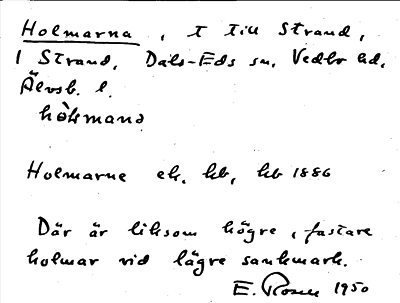 Holmarna, t till Strand,
1 Strand, Dals-Eds sn, Vedbo hd,
Älvsb. l.
hòlmana
Holmarne ek. kb, hb 1886
Där är liksom högre, fastare
holmar vid lägre sankmark.
E. Rosen 1950